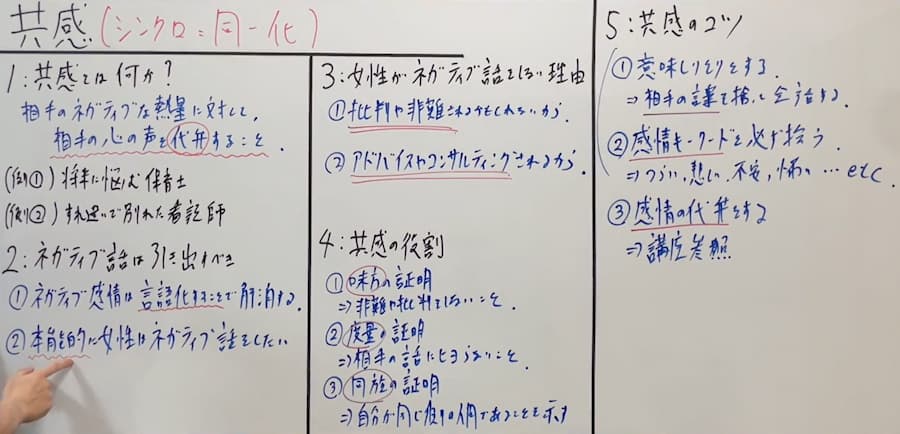 共感(シンクロ:同一化)
1:共感とは何か?
相手のネガティブな熱量に対して、
相手の心の声を代弁すること.
(例①) 将来に悩む保育士
(例②) すれ違いで別れた看護師
2:ネガティブ話は引き出すべき
①ネガティブ感情は言語化することで解消する.
②本能的に女性はネガティブ話をしたい
3:女性がネガティブ話をしない理由
①批判や非難されるかもしれないから.
②アドバイスやコンサルティングされるから.
4:共感の役割
①味方の証明
⇒非難や批判をしないこと.
②度量の証明
⇒相手の話にヒヨらないこと.
③同族の証明
⇒自分が同じ側の人間であることを示す
5:共感のコツ
①意味しりとりをする.
⇒相手の言葉を捨って会話する.
②感情キーワードを必ず拾う.
⇒つらい,悲しい,不安,怖い…etc.
③感情の代弁をする
⇒講座参照